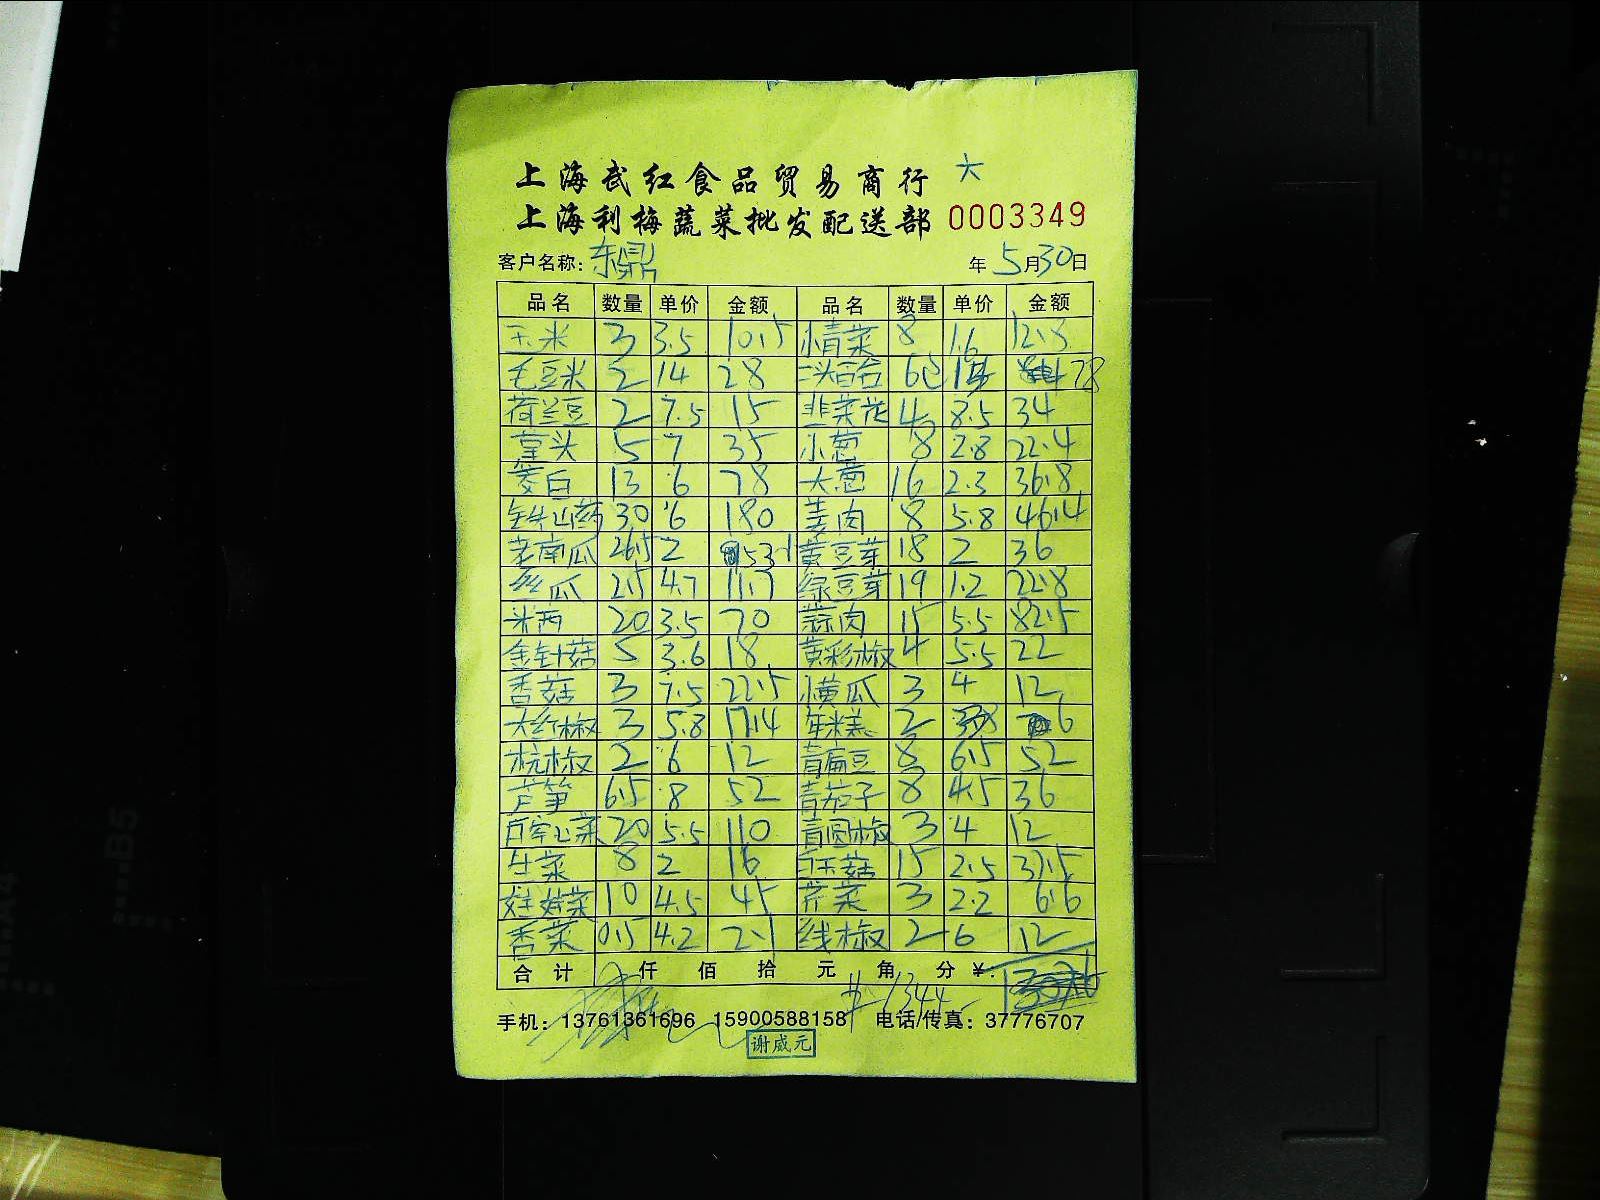 上海武红食品贸易商行 六
上海利梅蔬菜批发配送部 0003349
客户名称: 东鼎 年 5月30日
品名 数量 单价 金额 品名 数量 单价 金额
玉米 3 3.5 10.5 小青菜 8 1.6 12.8
毛豆米 2 14 28 二头百合 6包 78
荷兰豆 2 7.5 15 韭菜花 4 8.5 34
草头 5 7 35 小葱 8 2.8 22.4
茭白 13 6 78 大葱 16 2.3 36.8
铁牛山药 30 6 180 姜肉 8 5.8 46.4
老南瓜 26.5 2 53 黄豆芽 18 2 36
丝瓜 2.5 4.7 11.7 绿豆芽 19 1.2 22.8
米苋 20 3.5 70 蒜肉 15 5.5 82.5
金针菇 5 3.6 18 黄彩椒 4 5.5 22
香菇 3 7.5 22.5 小黄瓜 3 4 12
大红椒 3 5.8 17.4 年糕 2 6
杭椒 2 6 12 青扁豆 8 6.5 52
芦笋 6.5 8 52 青茄子 8 4.5 36
20 5.5 110 青圆椒 3 4 12
生菜 8 2 16 白玉菇 15 2.5 37.5
娃娃菜 10 4.5 45 芹菜 3 2.2 6.6
香菜 0.5 4.2 2.1 线椒 2 6 12
合计 仟 佰 拾 元 角 分 ¥.
1344
手机: 13761361696 15900588158 电话/传真: 37776707
谢咸元